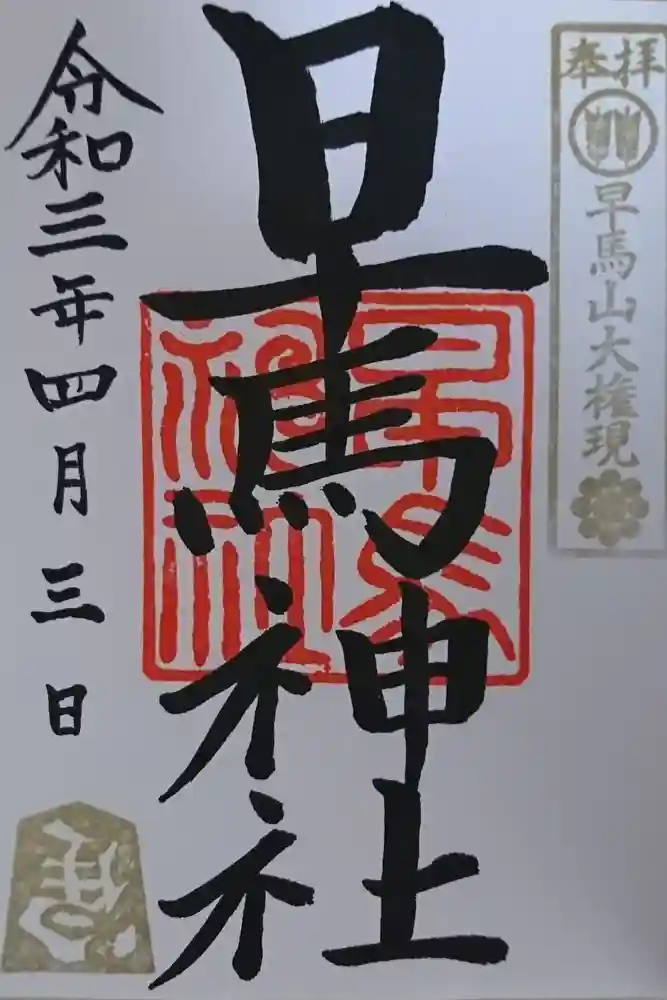 奉拝
早馬山大権現
早馬神社
早馬
神社
令和三年四月三日
馬